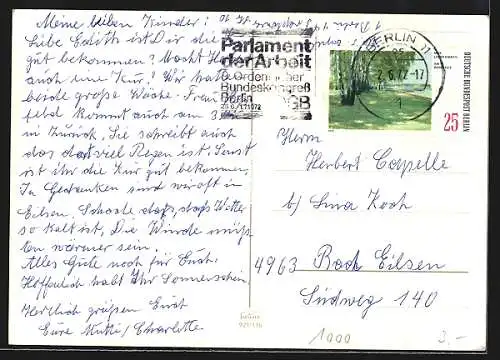 Meine lieben Kinder!
Liebe Edith ist Dir die
gut bekommen? Macht H
auch eine Kur! Wir ha
beide große Wäsche. Frau
feld kommt auch am 3.
in Zürich. Sie schreibt auch
das dort viel Regen ist. Sonst
ist ihr die Kur gut bekommen.
In Gedanken sind wir oft in
Eilsen. Schade daß, daß Wetter
so kalt ist. Die Winde müß
ten wärmer sein.
Alles Gute noch für Euch.
Hoffentlich habt Ihr Sonnenschein.
Herzlich grüßen Euch
Eure Mutti / Charlotte
Parlament
der Arbeit
9. Ordentlicher
Bundeskongreß
Berlin DGB
25.6.-1.7.1972
BERLIN 11
2.6.72-17
1
DEUTSCHE BUNDESPOST BERLIN
25
Herrn
Herbert Capelle
b) Lina Koch
4963 Bad Eilsen
Südweg 140
1000
3,-